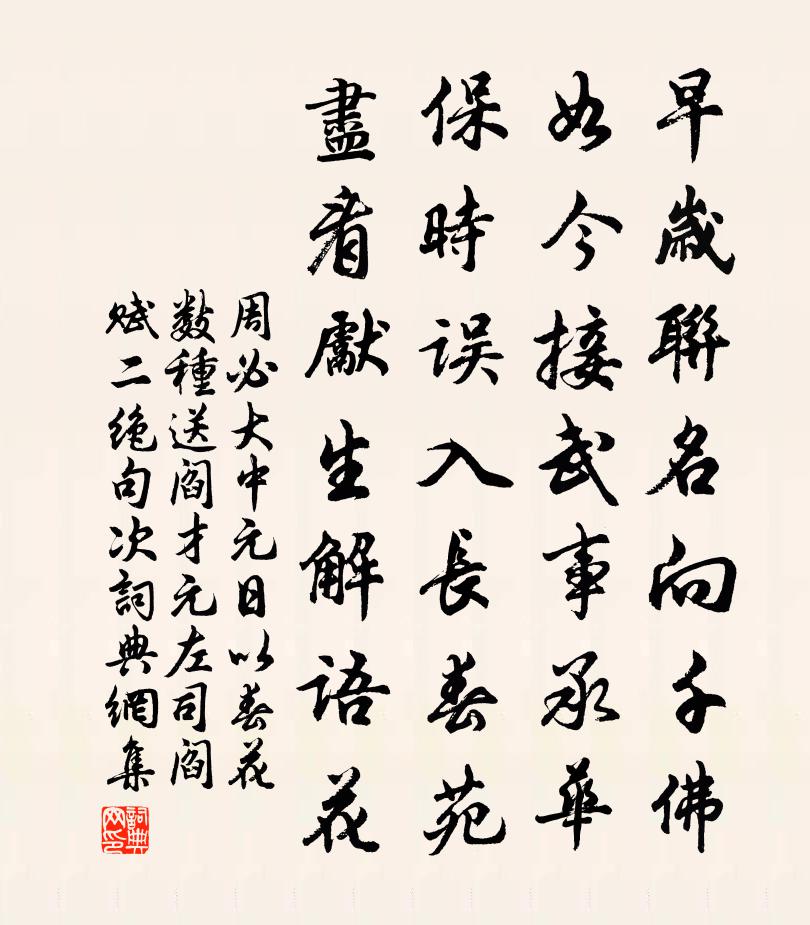 早歲聯名向千佛
如今接武事承華
保時误入長春苑
盡看獻生解語花
周必大中元日以春花
數種送閻才元左司閻
賦二絶句次詞典網集
詞典网印